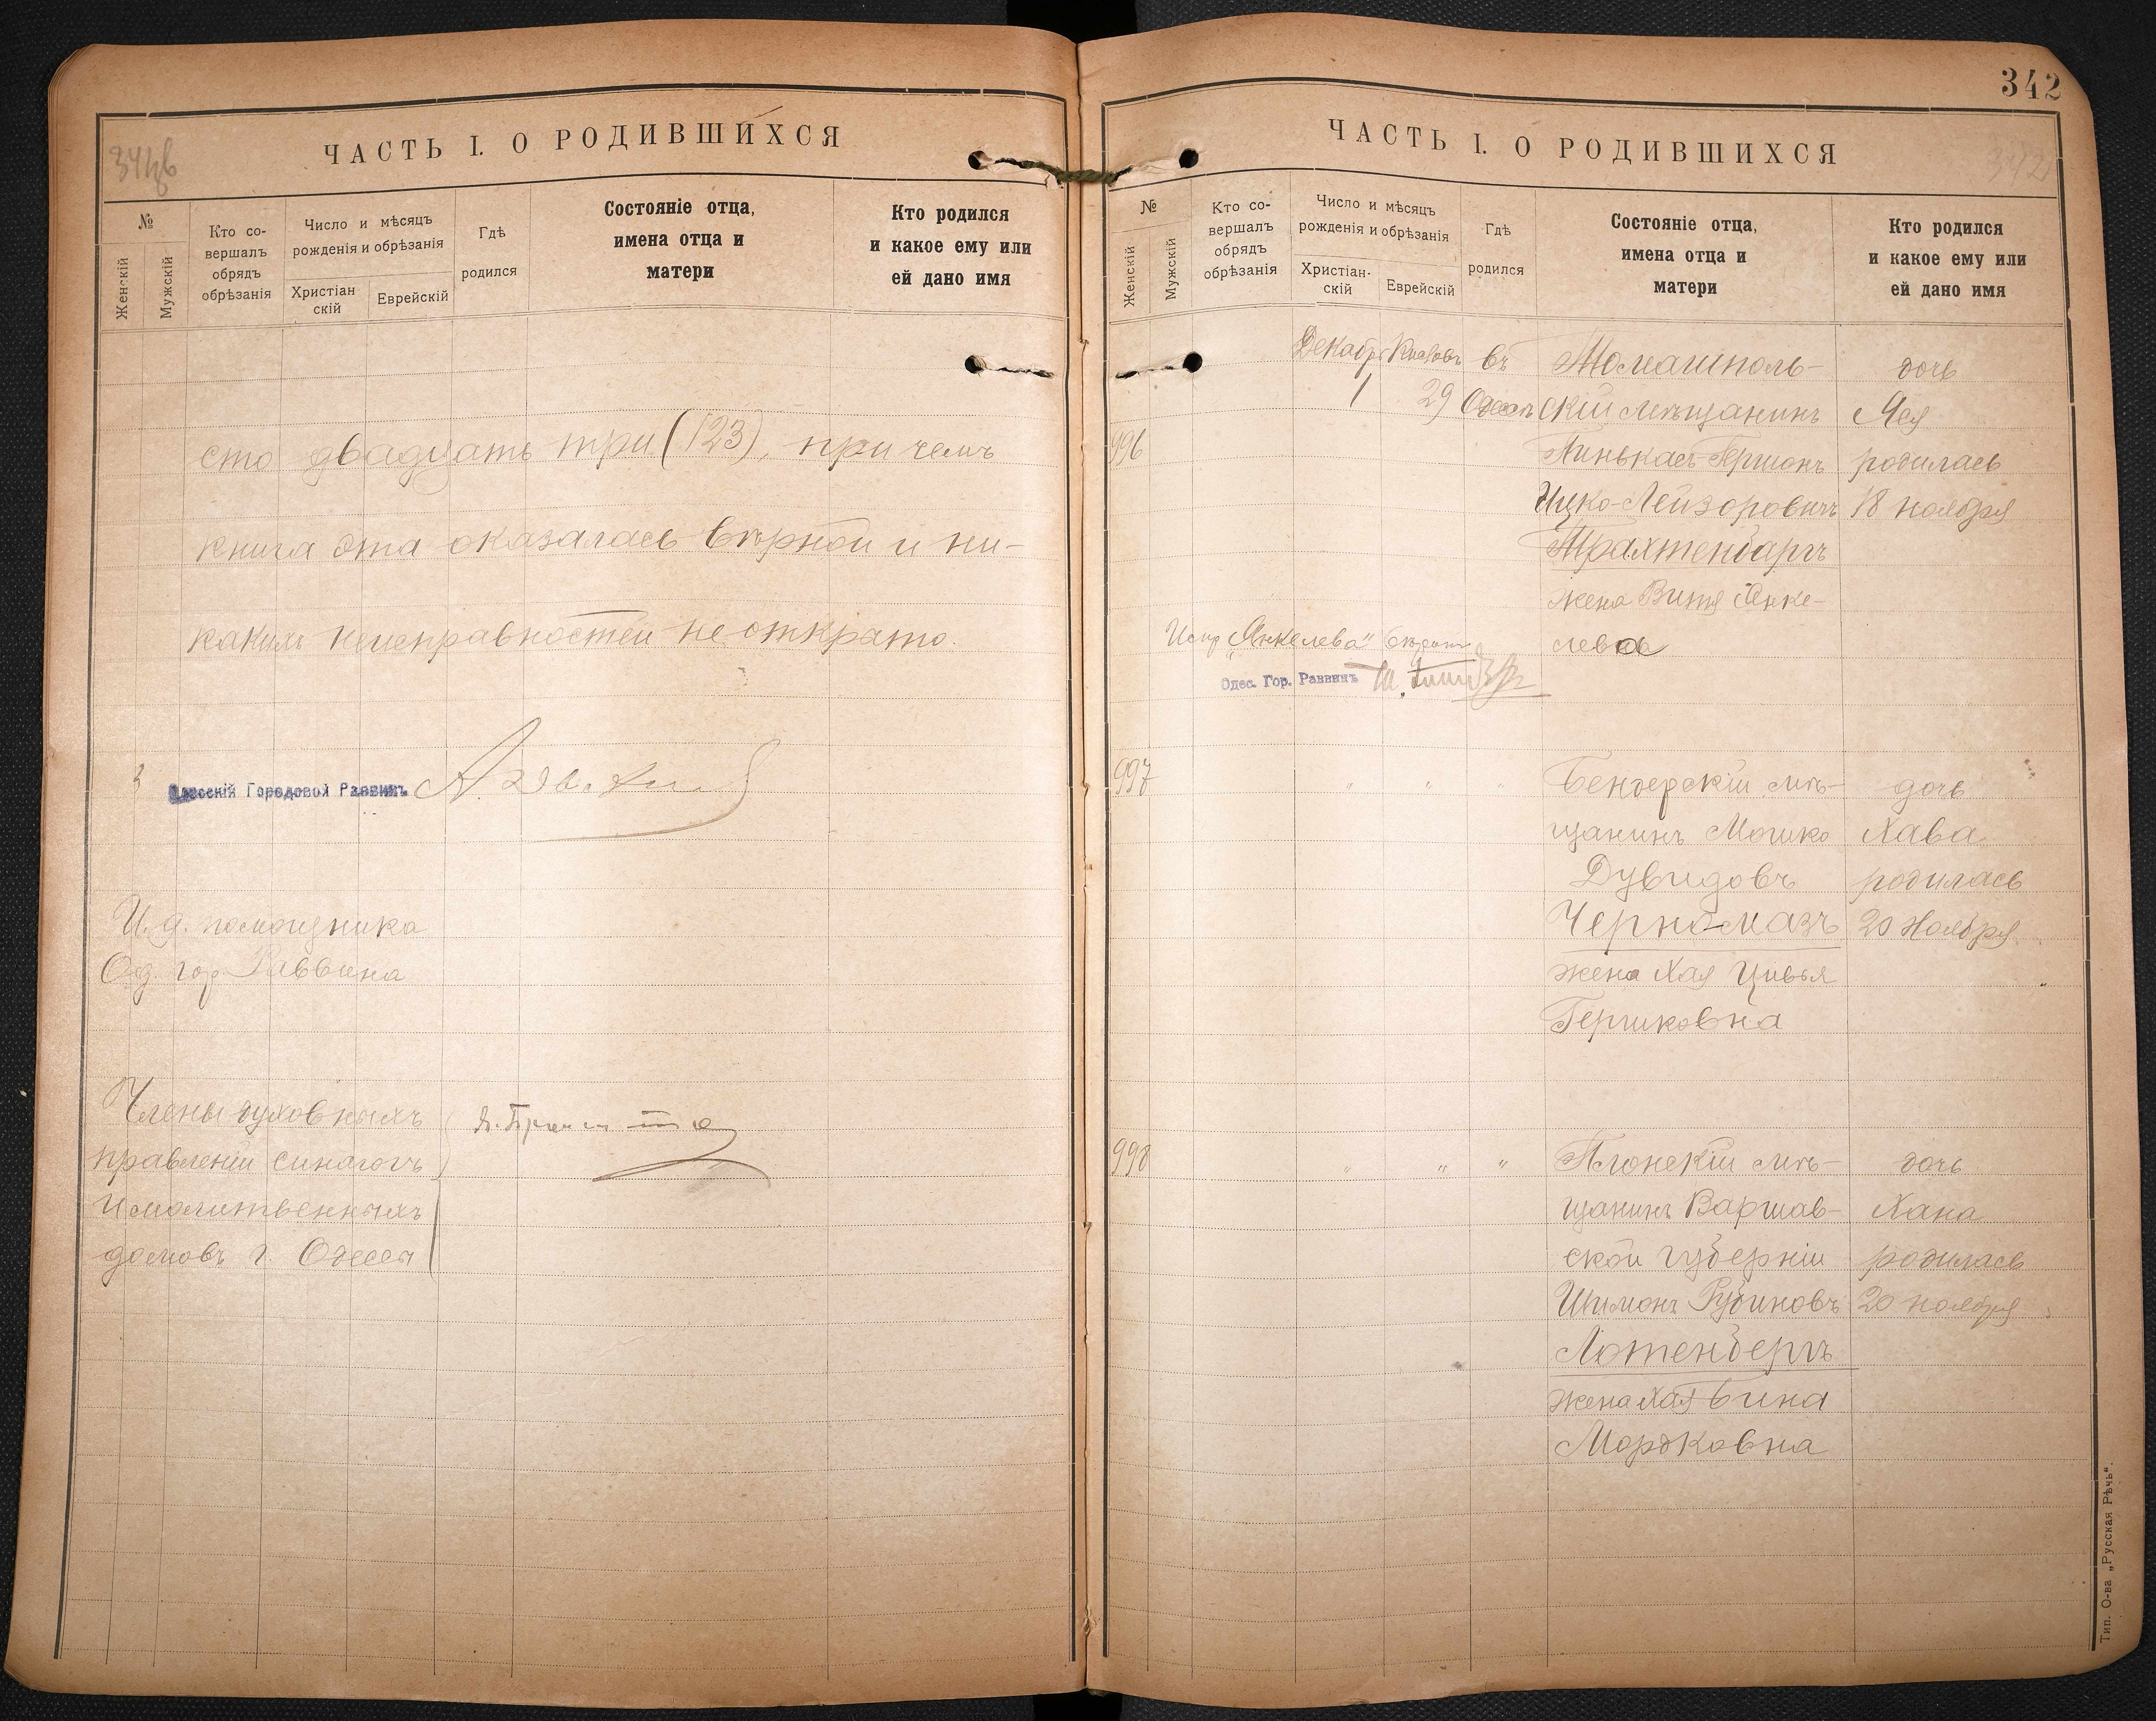 341об
ЧАСТЬ I. О РОДИВШИХСЯ
№
Женскій
Мужскій
Кто со-
вершалъ
обрядъ
обрѣзанія
Число и мѣсяцъ
рожденія и обрѣзанія
Христіан
скій
Еврейскій
Гдѣ
родился
Состояніе отца,
имена отца и
матери
Кто родился
и какое ему или
ей дано имя
сто двадцать три (123), при чемъ
книга эта оказалась вѣрной и ни-
какихъ неисправностей не открыто.
Одесскій Городовой Раввинъ
И. д. помощника
Од. гор. Раввина
Члены духовныхъ
правленій синагогъ
и молитвенныхъ
домовъ г. Одессы
342
ЧАСТЬ I. О РОДИВШИХСЯ
342
№
Женскій
Мужскій
Кто со-
вершалъ
обрядъ
обрѣзанія
Число и мѣсяцъ
рожденія и обрѣзанія
Христіан-
скій
Еврейскій
Гдѣ
родился
Состояніе отца,
имена отца и
матери
Кто родился
и какое ему или
ей дано имя
996
Декабрь
1
Кислевъ
29
въ
Одессѣ
Томашполь-
скій мѣщанинъ
Пинькасъ-Гершонъ
Ицко-Лейзоровичъ
Трахтенбаргъ
жена Витя Янке-
лева
дочь
Ася
родилась
18 ноября
Испр. „Янкелева" вѣрить
Одес. Гор. Раввинъ
997
" " "
Бендерскій мѣ-
щанинъ Мошко
Дувидовъ
Черномазъ
жена Хая Цивья
Гершковна
дочь
Хава
родилась
20 Ноября
998
" " "
Плонскій мѣ-
щанинъ Варшав-
ской губерніи
Шимонъ Рубиновъ
Лотенбергъ
жена Хая Бина
Мордковна
дочь
Хана
родилась
20 ноября
Тип. О-ва „Русская Рѣчь".